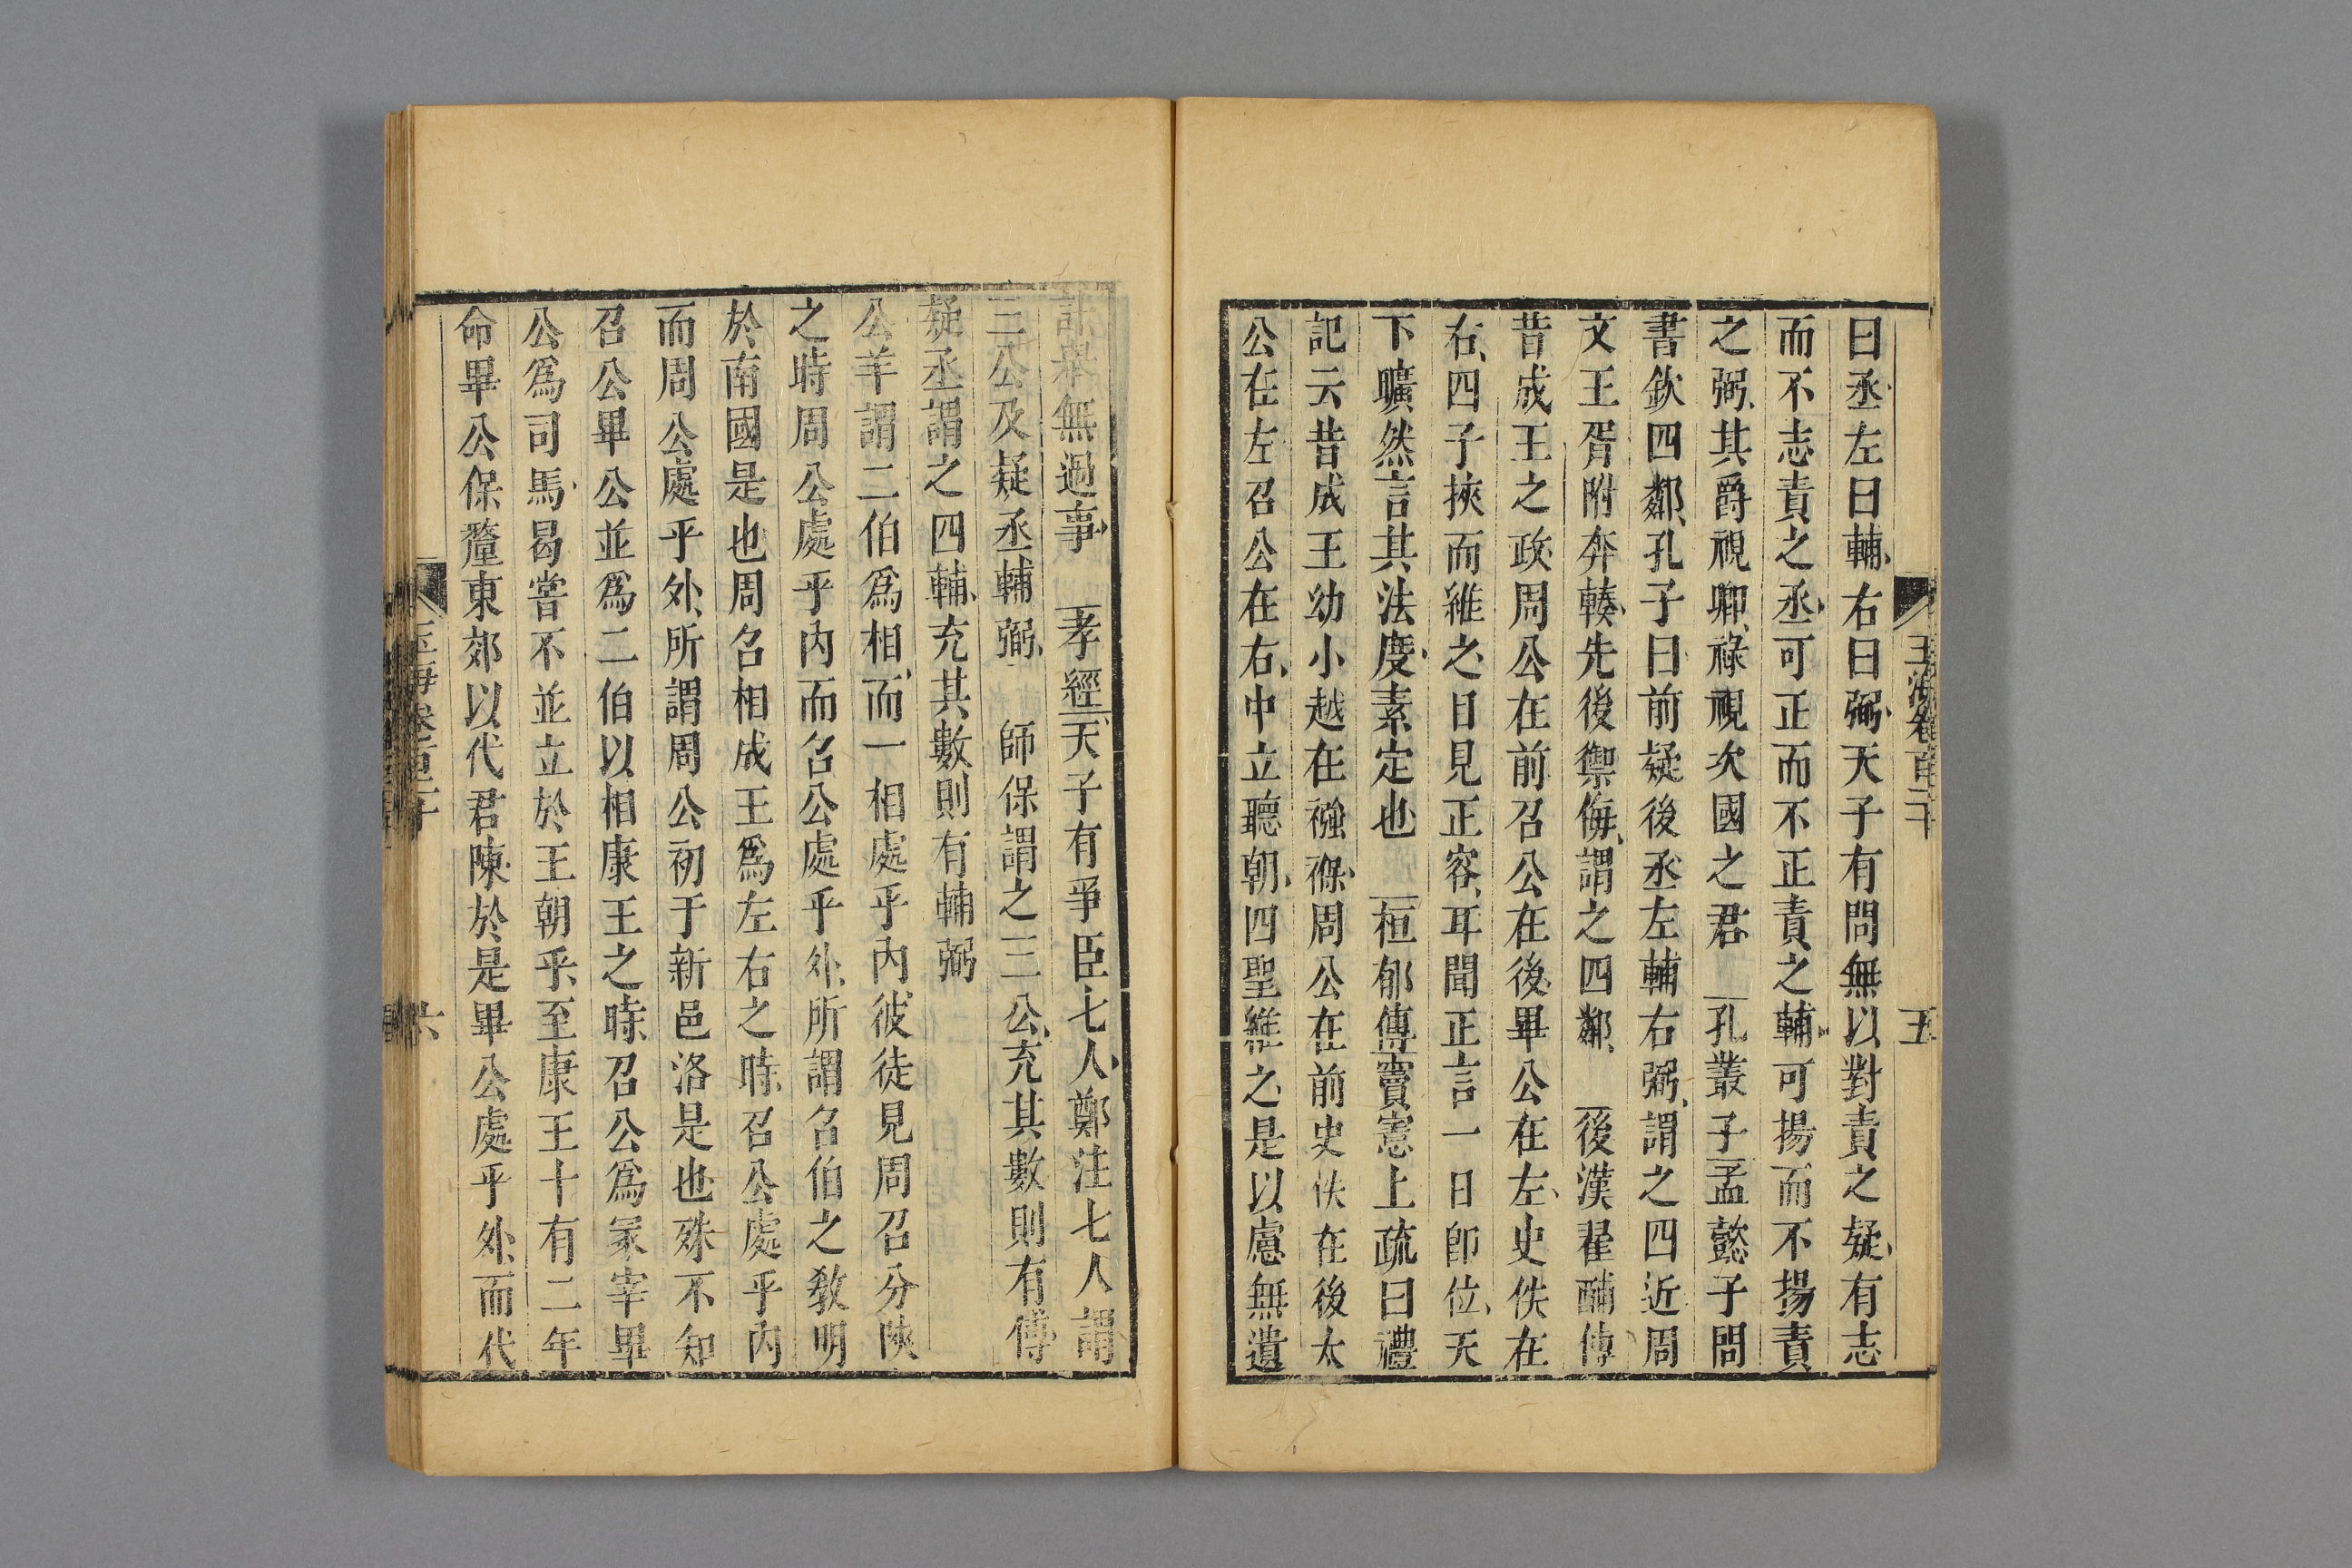 玉海卷百二十　五
曰丞左曰輔右曰弼天子有問無以對責之疑有志
而不志責之丞可正而不正責之輔可揚而不揚責
之弼其爵視卿祿視次國之君　孔叢子孟懿子問
書欽四鄰孔子曰前疑後丞左輔右弼謂之四近周
文王胥附奔輳先後禦侮謂之四鄰　後漢翟酺傳
昔成王之政周公在前召公在後畢公在左史佚在
右四子挾而維之目見正容耳聞正言一日即位天
下曠然言其法度素定也　桓郁傳竇憲上疏曰禮
記云昔成王幼小越在襁褓周公在前史佚在後太
公在左召公在右中立聽朝四聖維之是以慮無遺
計舉無過事　孝經天子有爭臣七人鄭注七人謂
三公及疑丞輔弼　師保謂之三公充其數則有傅
疑丞謂之四輔充其數則有輔弼
公羊謂二伯爲相而一相處乎內彼徒見周召分陝
之時周公處乎内而召公處乎外所謂召伯之敎明
於南國是也周召相成王爲左右之時召公處乎内
而周公處乎外所謂周公初于新邑洛是也殊不知
召公畢公並爲二伯以相康王之時召公爲冢宰畢
公爲司馬曷嘗不並立於王朝乎至康王十有二年
命畢公保釐東郊以代君陳於是畢公處乎外而代
玉海卷百二十　六